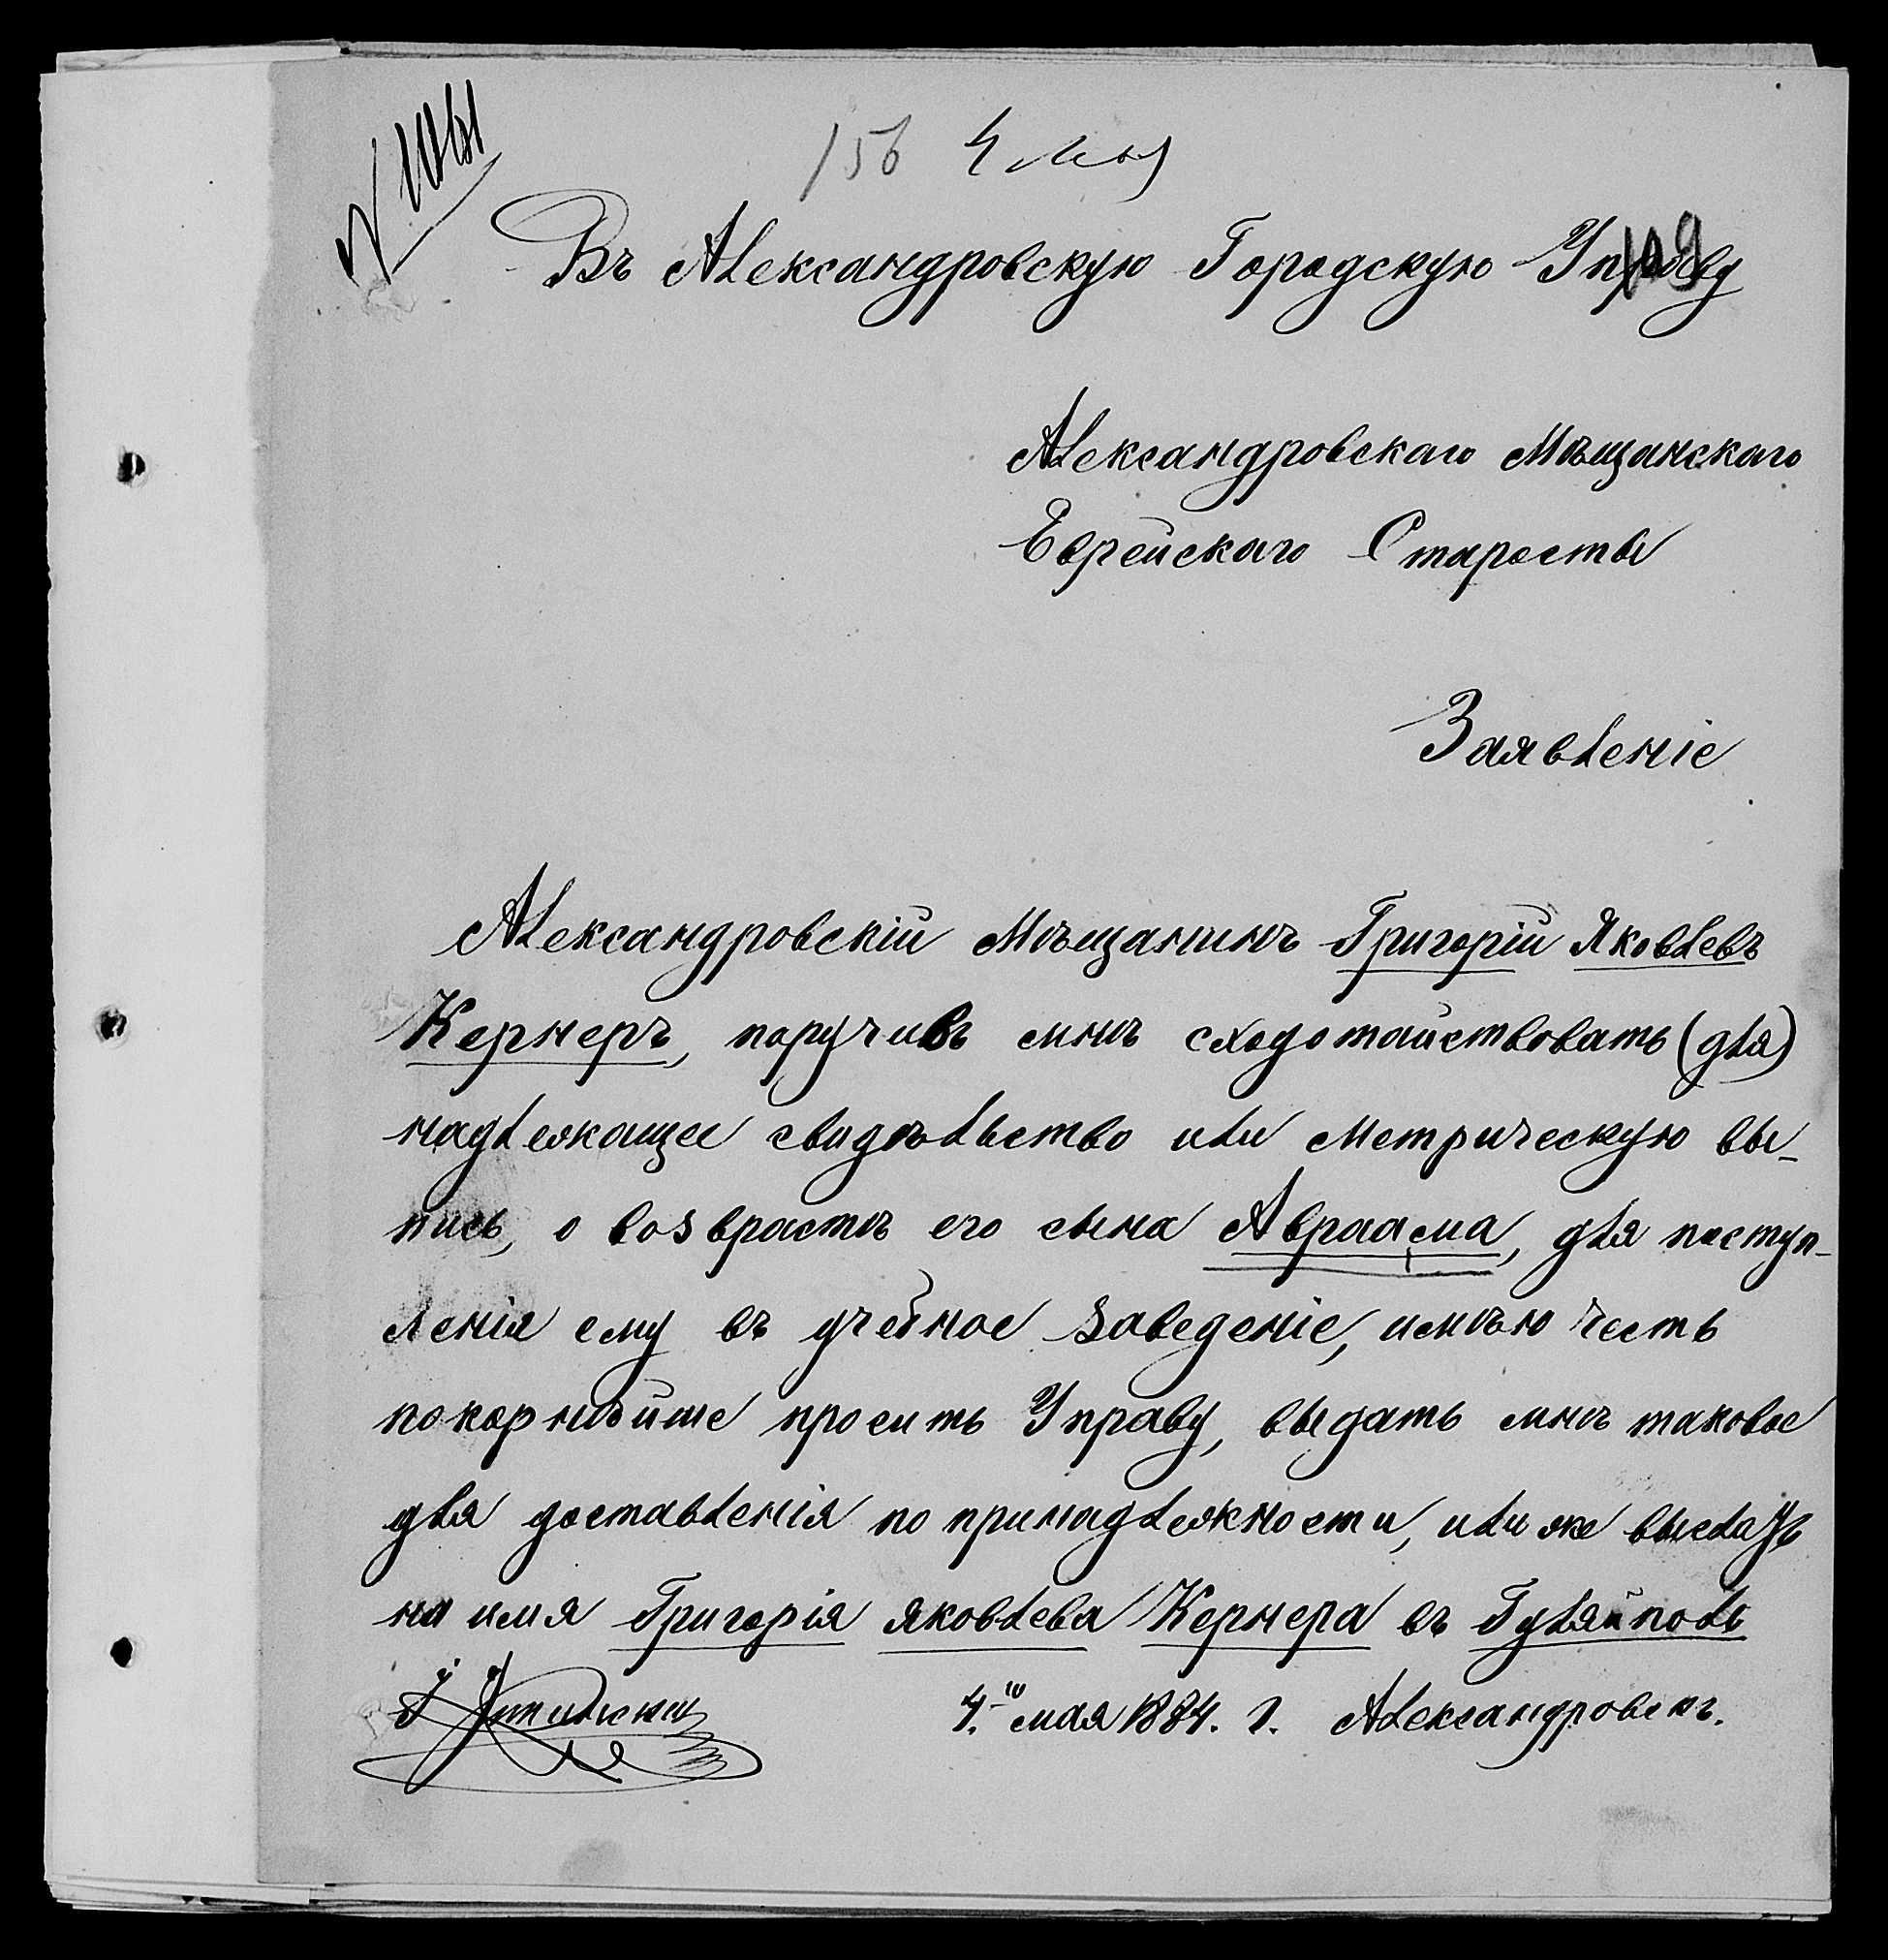 156 4 мая
109
Въ Александровскую Городскую Управу
Александровскаго Мѣщанскаго
Еврейскаго Старосты
Заявленіе
Александровскій Мѣщанинъ Григорій Яковлевъ
Кернеръ, поручивъ мнѣ сходотайствовать (для)
надлежащее свидѣтельство или метрическую вы-
пись, о возврастѣ его сына Авраама, для поступ-
ленія ему въ учебное заведеніе, имѣю честь
покорнѣйше просить Управу, выдать мнѣ таковое
для доставленія по принадлежности, или же выслать
на имя Григорія Яковлева Кернера въ Гуляйполь
4.го мая 1884. г. Александровскъ.